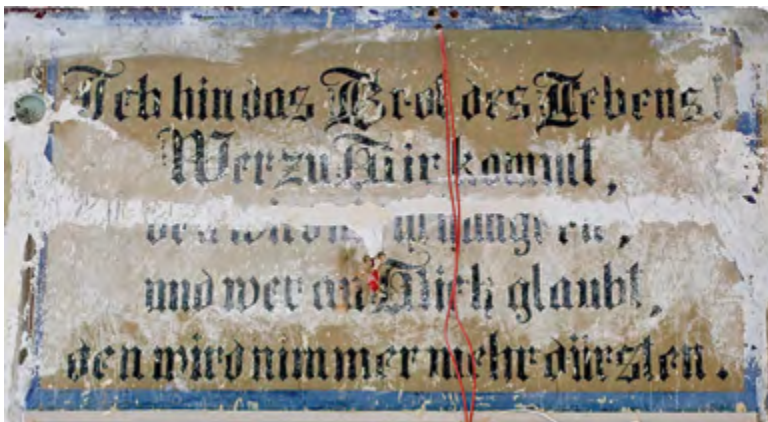 Ich bin das Brot des Lebens!
Wer zu Mir kommt,
den wird nicht hungern,
und wer an Mich glaubt,
den wird nimmermehr dürsten.